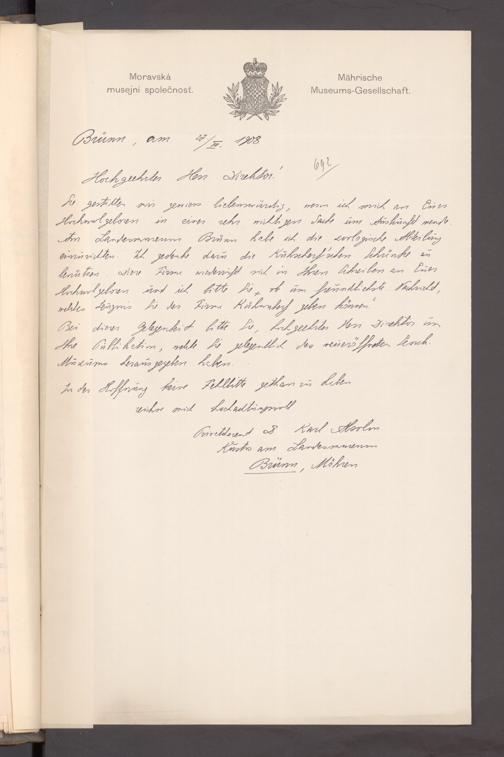 Moravská
musejní společnost.
Mährische
Museums-Gesellschaft.
Brünn, am 27/XI. 1908
692
Hochgeehrter Herr Direktor!
Sie gestatten mir gewiss liebenswürdig, wenn ich mich an Euer
Hochwohlgeboren in einer sehr wichtigen Sache um Auskunft wende.
Am Landesmuseum Brünn habe ich die zoologische Abteilung
einzurichten. Ich gedenke dazu die Kühnscherf'schen Schränke zu
benützen. Diese Firma in Ihrem Schreiben an Euer
Hochwohlgeboren und ich bitte Sie, um freundlichste Nachricht,
welches Zeugnis Sie der Firma Kühnscherf geben können!
Bei dieser Gelegenheit bitte Sie, hochgeehrter Herr Direktor um
Ihre Publikation, welche Sie gelegentlich des neueröffneten
Museums herausgegeben haben.
In der Hoffnung keine Fehlbitte gethan zu haben
zeichne mich hochachtungsvoll
Privatdozent D Karl Absolon
Kustos am Landesmuseum
Brünn, Mähren